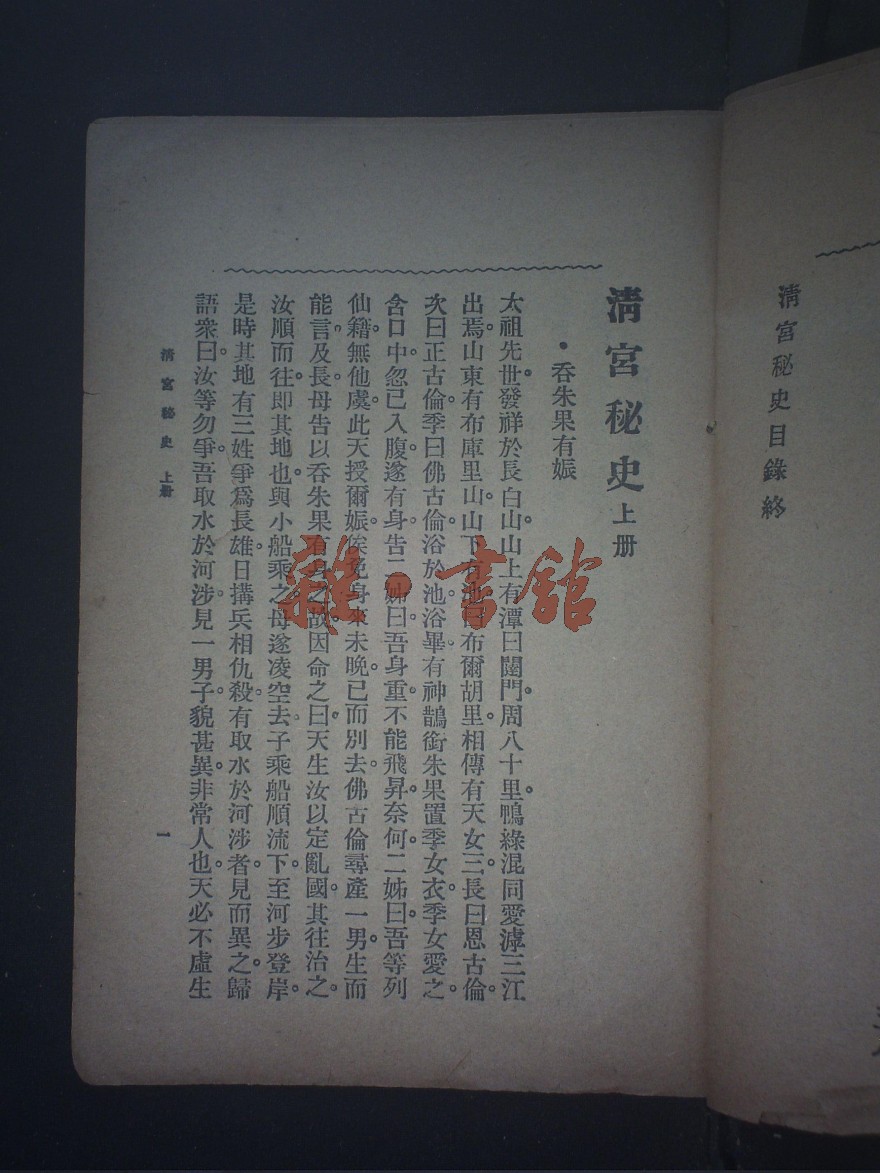 清宮秘史目錄終
清宮秘史上册
•吞朱果有娠
太祖先世。發祥於長白山。山上有潭曰闥門。周八十里。鴨綠混同愛滹三江
出焉。山東有布庫里山。山下有池曰布爾胡里。相傳有天女三。長曰恩古倫。
次曰正古倫。季曰佛古倫。浴於池。浴畢。有神鵲銜朱果置季女衣。季女愛之。
含口中。忽已入腹。遂有身。告二姊曰。吾身重不能飛昇。奈何。二姊曰。吾等列
仙籍。無他虞。此天授爾娠。俟免身來未晚。已而別去。佛古倫尋產一男。生而
能言。及長。母告以吞朱果有身之故。因命之曰。天生汝以定亂國。其往治之。
汝順而往。即其地也。與小船乘之。母遂凌空去。子乘船順流下。至河步登岸。
是時其地有三姓爭爲長雄。日搆兵相仇殺。有取水於河涉者。見而異之。歸
語衆曰。汝等勿爭。吾取水於河涉。見一男子。貌甚異。非常人也。天必不虛生
清宮秘史 上册
一
雜·書館